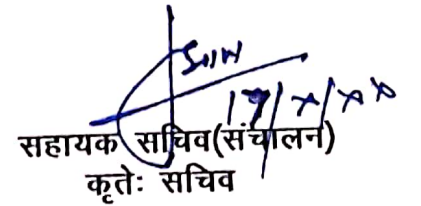 सहायक सचिव(संचालन)
कृतेः सचिव